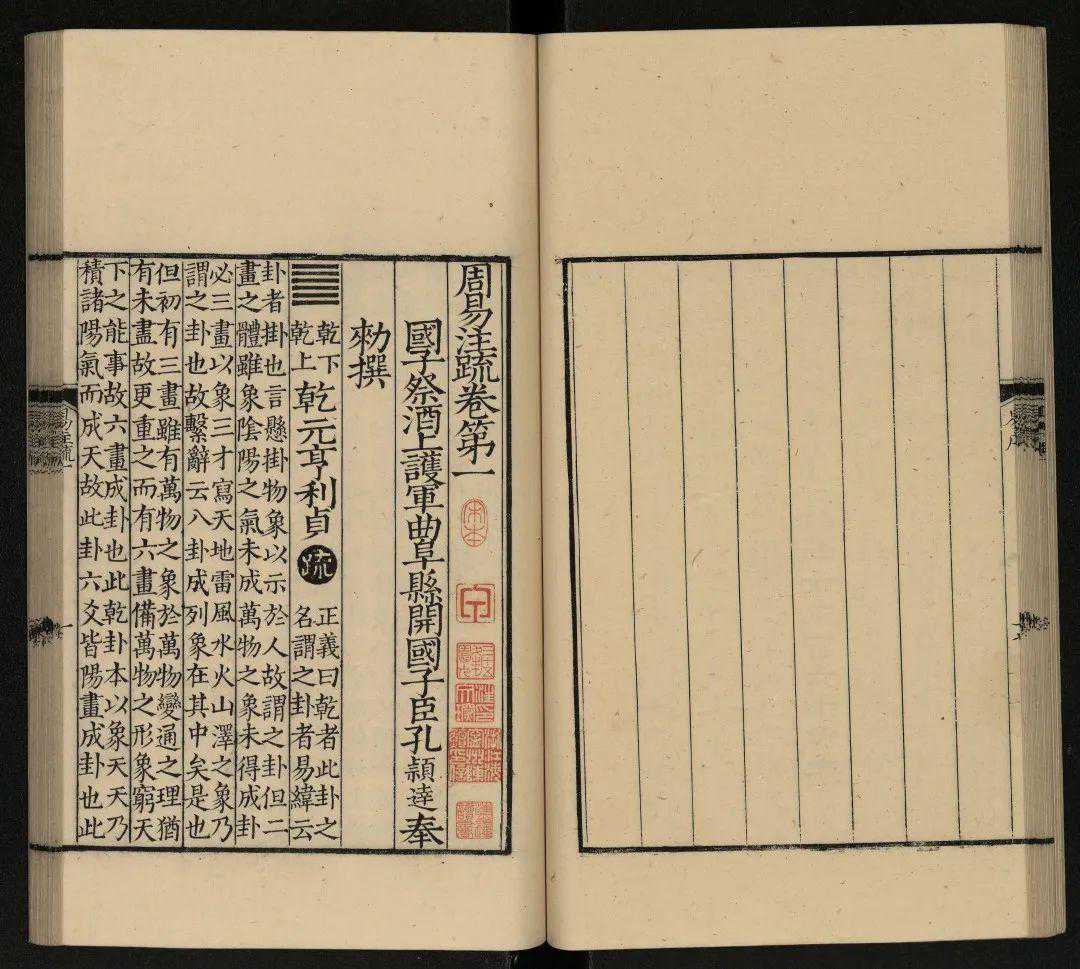 周易注疏卷第一
宋本
國子祭酒上護軍曲阜縣開國子臣孔穎達奉
勑撰
乾下
乾上
乾元亨利貞
疏
正義曰乾者此卦之
名謂之卦者易緯云
卦者掛也言懸掛物象以示於人故謂之卦但二
畫之體雖象陰陽之氣未成萬物之象未得成卦
必三畫以象三才寫天地雷風水火山澤之象乃
謂之卦也故繫辭云八卦成列象在其中矣是也
但初有三畫雖有萬物之象於萬物變通之理猶
有未盡故更重之而有六畫備萬物之形象窮天
下之能事故六畫成卦也此乾卦本以象天天乃
積諸陽氣而成天故此卦六爻皆陽畫成卦也此
易注疏一
一